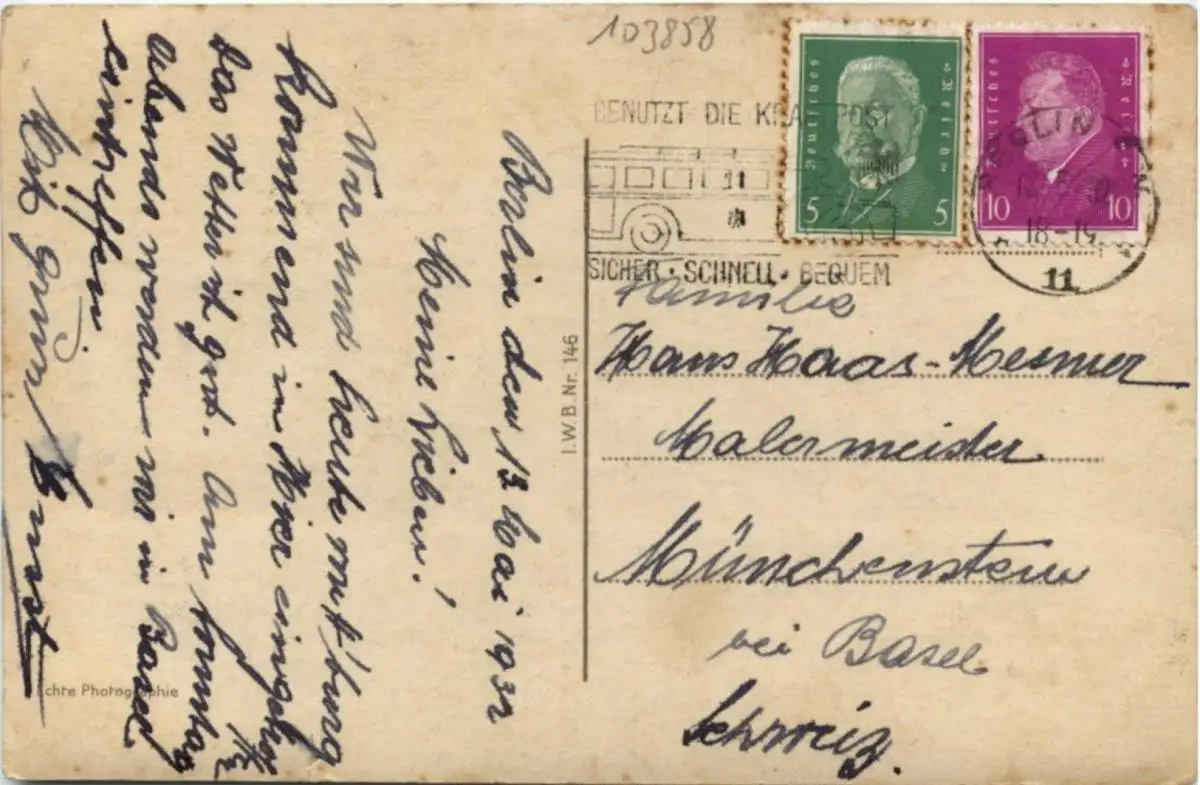 103858
BENUTZT DIE KRAFTPOST
SICHER · SCHNELL · BEQUEM
Deutsches Reich
5 5
Deutsches Reich
10 10
BERLIN
18-19
11
Familie
Hans Haas-Mesmer
Malermeister
Münchenstein
bei Basel
Schweiz.
I.W.B.Nr. 146
Berlin den 13 Mai 1932
Meine Lieben!
Wir sind heute mit
kommend in hier
das Wetter ist gut. Am Sonntag
Abends werden wir in Basel
eintreffen.
Mit Gruss Ernst
Echte Photographie